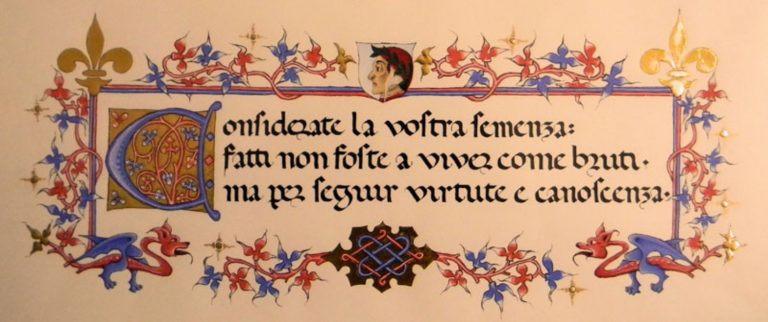 Considerate la vostra semenza:
fatti non foste a viver come bruti.
ma per seguir virtute e canoscenza.